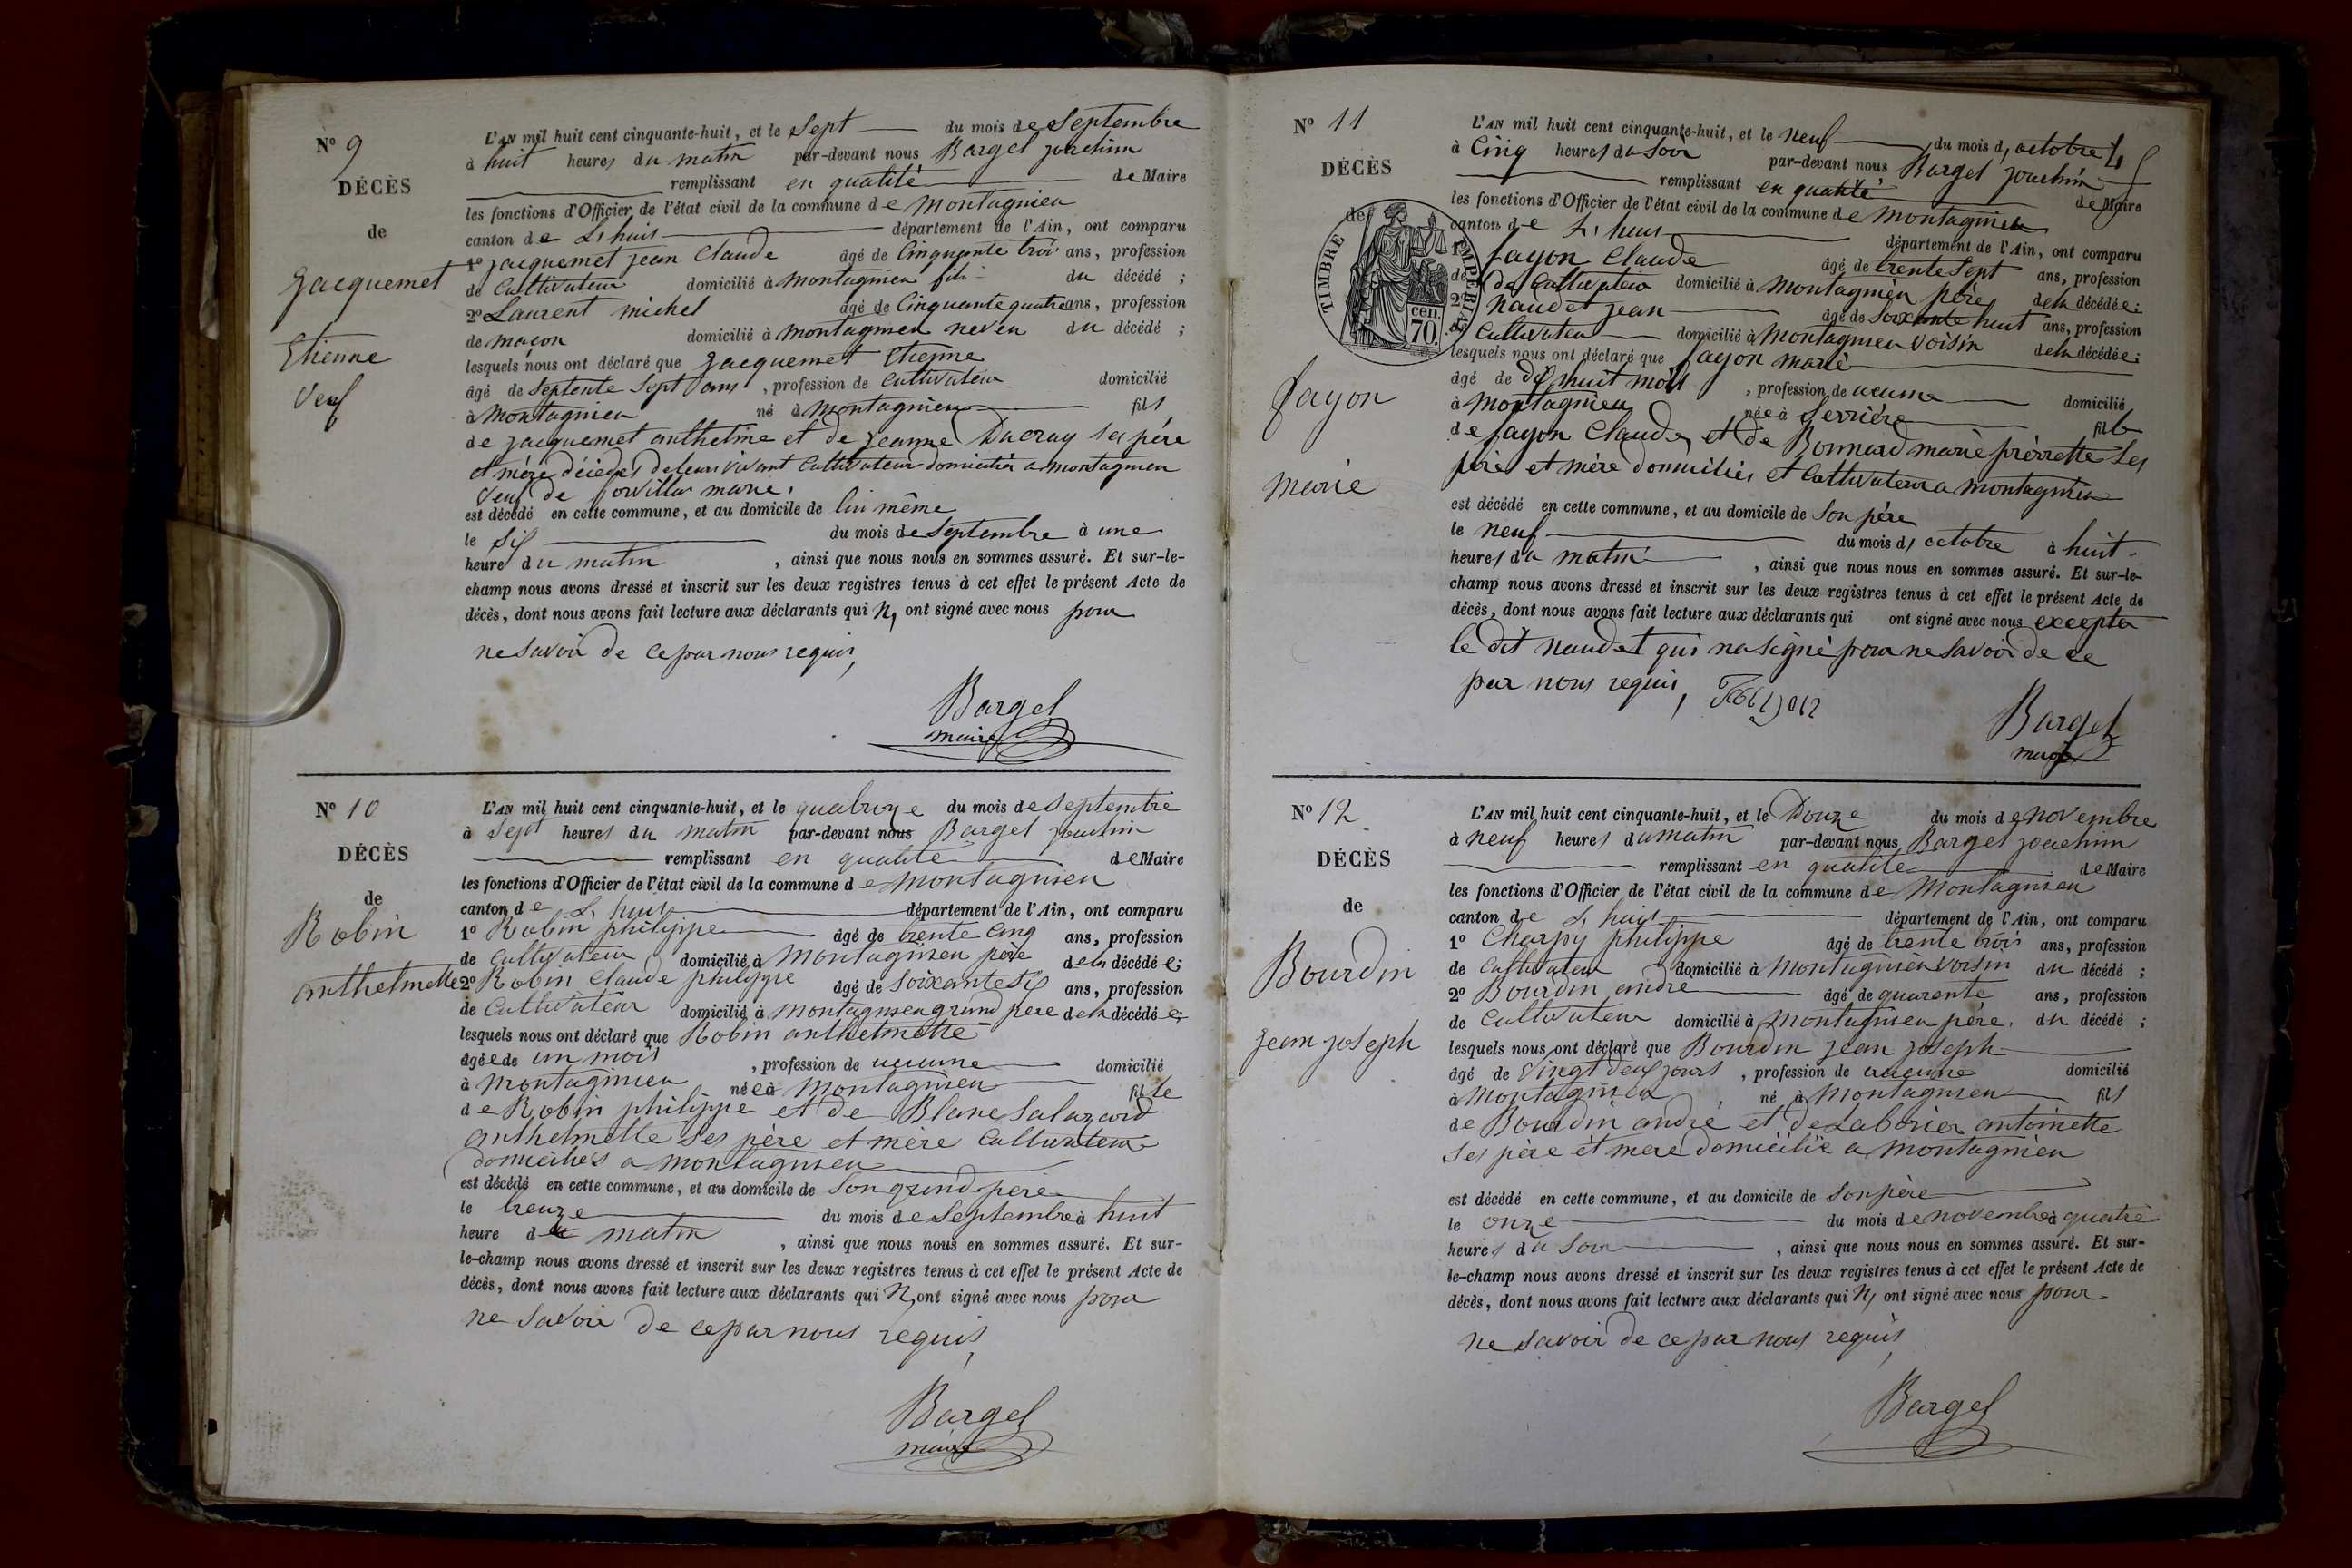 N° 9
DÉCÈS
de
Jacquemet
Etienne
Veuf
L'AN mil huit cent cinquante-huit, et le sept du mois de Septembre
à huit heures du matin par-devant nous Bargel joachim
remplissant en qualité de Maire
les fonctions d'Officier de l'état civil de la commune de montagnieu
canton de Lhuis département de l'Ain, ont comparu
1° jacquemet jean Claude âgé de Cinquante trois ans, profession
de Cultivateur domicilié à montagnieu fils du décédé ;
2° Laurent michel âgé de Cinquante quatre ans, profession
de maçon domicilié à montagnieu neveu du décédé ;
lesquels nous ont déclaré que jacquemet Etienne
âgé de septente sept ans , profession de Cultivateur domicilié
à montagnieu né à montagnieu fils
de jacquemet anthelme et de jeanne Ducray ses père
et mère décédés de leurs vivant Cultivateur domiciliés a montagnieu
Veuf de marie.
est décédé en cette commune, et au domicile de lui même
le six du mois de septembre à une
heure du matin , ainsi que nous nous en sommes assuré. Et sur-le-
champ nous avons dressé et inscrit sur les deux registres tenus à cet effet le présent Acte de
décès, dont nous avons fait lecture aux déclarants qui n, ont signé avec nous pour
ne savoir de ce par nous requis,
Bargel
maire
N° 10
DÉCÈS
de
Robin
anthelmette
L'AN mil huit cent cinquante-huit, et le quatorze du mois de septembre
à sept heures du matin par-devant nous Bargel joachim
remplissant en qualité de Maire
les fonctions d'Officier de l'état civil de la commune de montagnieu
canton de Lhuis département de l'Ain, ont comparu
1° Robin philippe âgé de trente cinq ans, profession
de Cultivateur domicilié à montagnieu père de la décédée ;
2° Robin Claude philippe âgé de soixante six ans, profession
de Cultivateur domicilié à montagnieu grand père de la décédée ;
lesquels nous ont déclaré que Robin anthelmette
âgée de un mois , profession de aucune domicilié
à montagnieu née à montagnieu fille
de Robin philippe et de Blanc Salazard
anthelmette ses père et mère Cultivateur
domiciliés a montagnieu
est décédé en cette commune, et au domicile de son grand père
le treize du mois de septembre à huit
heure du matin , ainsi que nous nous en sommes assuré. Et sur-
le-champ nous avons dressé et inscrit sur les deux registres tenus à cet effet le présent Acte de
décès, dont nous avons fait lecture aux déclarants qui n, ont signé avec nous pour
ne savoir de ce par nous requis,
Bargel
maire
N° 11
DÉCÈS
de
fayon
marie
TIMBRE IMPERIAL
70 cen.
L'AN mil huit cent cinquante-huit, et le neuf du mois d, octobre
à Cinq heures du soir par-devant nous Bargel joachim
remplissant en qualité de Maire
les fonctions d'Officier de l'état civil de la commune de montagnieu
canton de Lhuis département de l'Ain, ont comparu
1° fayon Claude âgé de trente sept ans, profession
de Cultivateur domicilié à montagnieu père de la décédée ;
2° naudet jean âgé de soixante huit ans, profession
de Cultivateur domicilié à montagnieu voisin de la décédée ;
lesquels nous ont déclaré que fayon marie
âgé de dix huit mois , profession de aucune domicilié
à montagnieu née à serrière fille
de fayon Claude, et de Bonnard marie pierrette ses
père et mère domiciliés et Cultivateur a montagnieu
est décédé en cette commune, et au domicile de son père
le neuf du mois d, octobre à huit
heures du matin , ainsi que nous nous en sommes assuré. Et sur-le-
champ nous avons dressé et inscrit sur les deux registres tenus à cet effet le présent Acte de
décès, dont nous avons fait lecture aux déclarants qui ont signé avec nous excepter
le dit naudet qui na signé pour ne savoir de ce
par nous requis,
Bargel
maire
N° 12
DÉCÈS
de
Bourdin
jean joseph
L'AN mil huit cent cinquante-huit, et le Douze du mois de novembre
à neuf heures du matin par-devant nous Bargel joachim
remplissant en qualité de Maire
les fonctions d'Officier de l'état civil de la commune de montagnieu
canton de Lhuis département de l'Ain, ont comparu
1° Charpy philippe âgé de trente trois ans, profession
de Cultivateur domicilié à montagnieu voisin du décédé ;
2° Bourdin andré âgé de quarente ans, profession
de Cultivateur domicilié à montagnieu père. du décédé ;
lesquels nous ont déclaré que Bourdin jean joseph
âgé de vingt deux jours , profession de aucune domicilié
à montagnieu né à montagnieu fils
de Bourdin andré et de Laborier antoinette
ses père et mere domicilié a montagnieu
est décédé en cette commune, et au domicile de son père
le onze du mois de novembre à quatre
heures du soir , ainsi que nous nous en sommes assuré. Et sur-
le-champ nous avons dressé et inscrit sur les deux registres tenus à cet effet le présent Acte de
décès, dont nous avons fait lecture aux déclarants qui n, ont signé avec nous pour
ne savoir de ce par nous requis,
Bargel